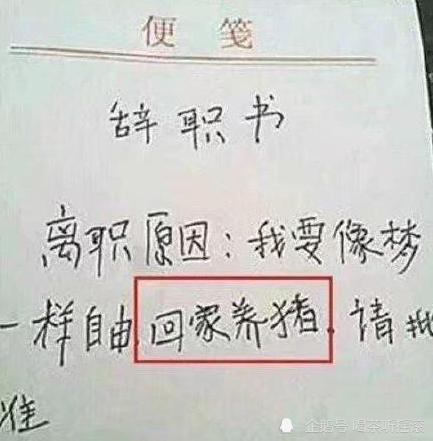 便笺
辞职书
离职原因:我要像梦
一样自由回家养猪.请批
准
企鹅号